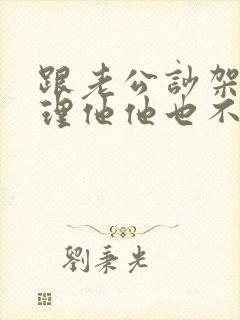 跟老公訬架
理他他也不
劉秉光